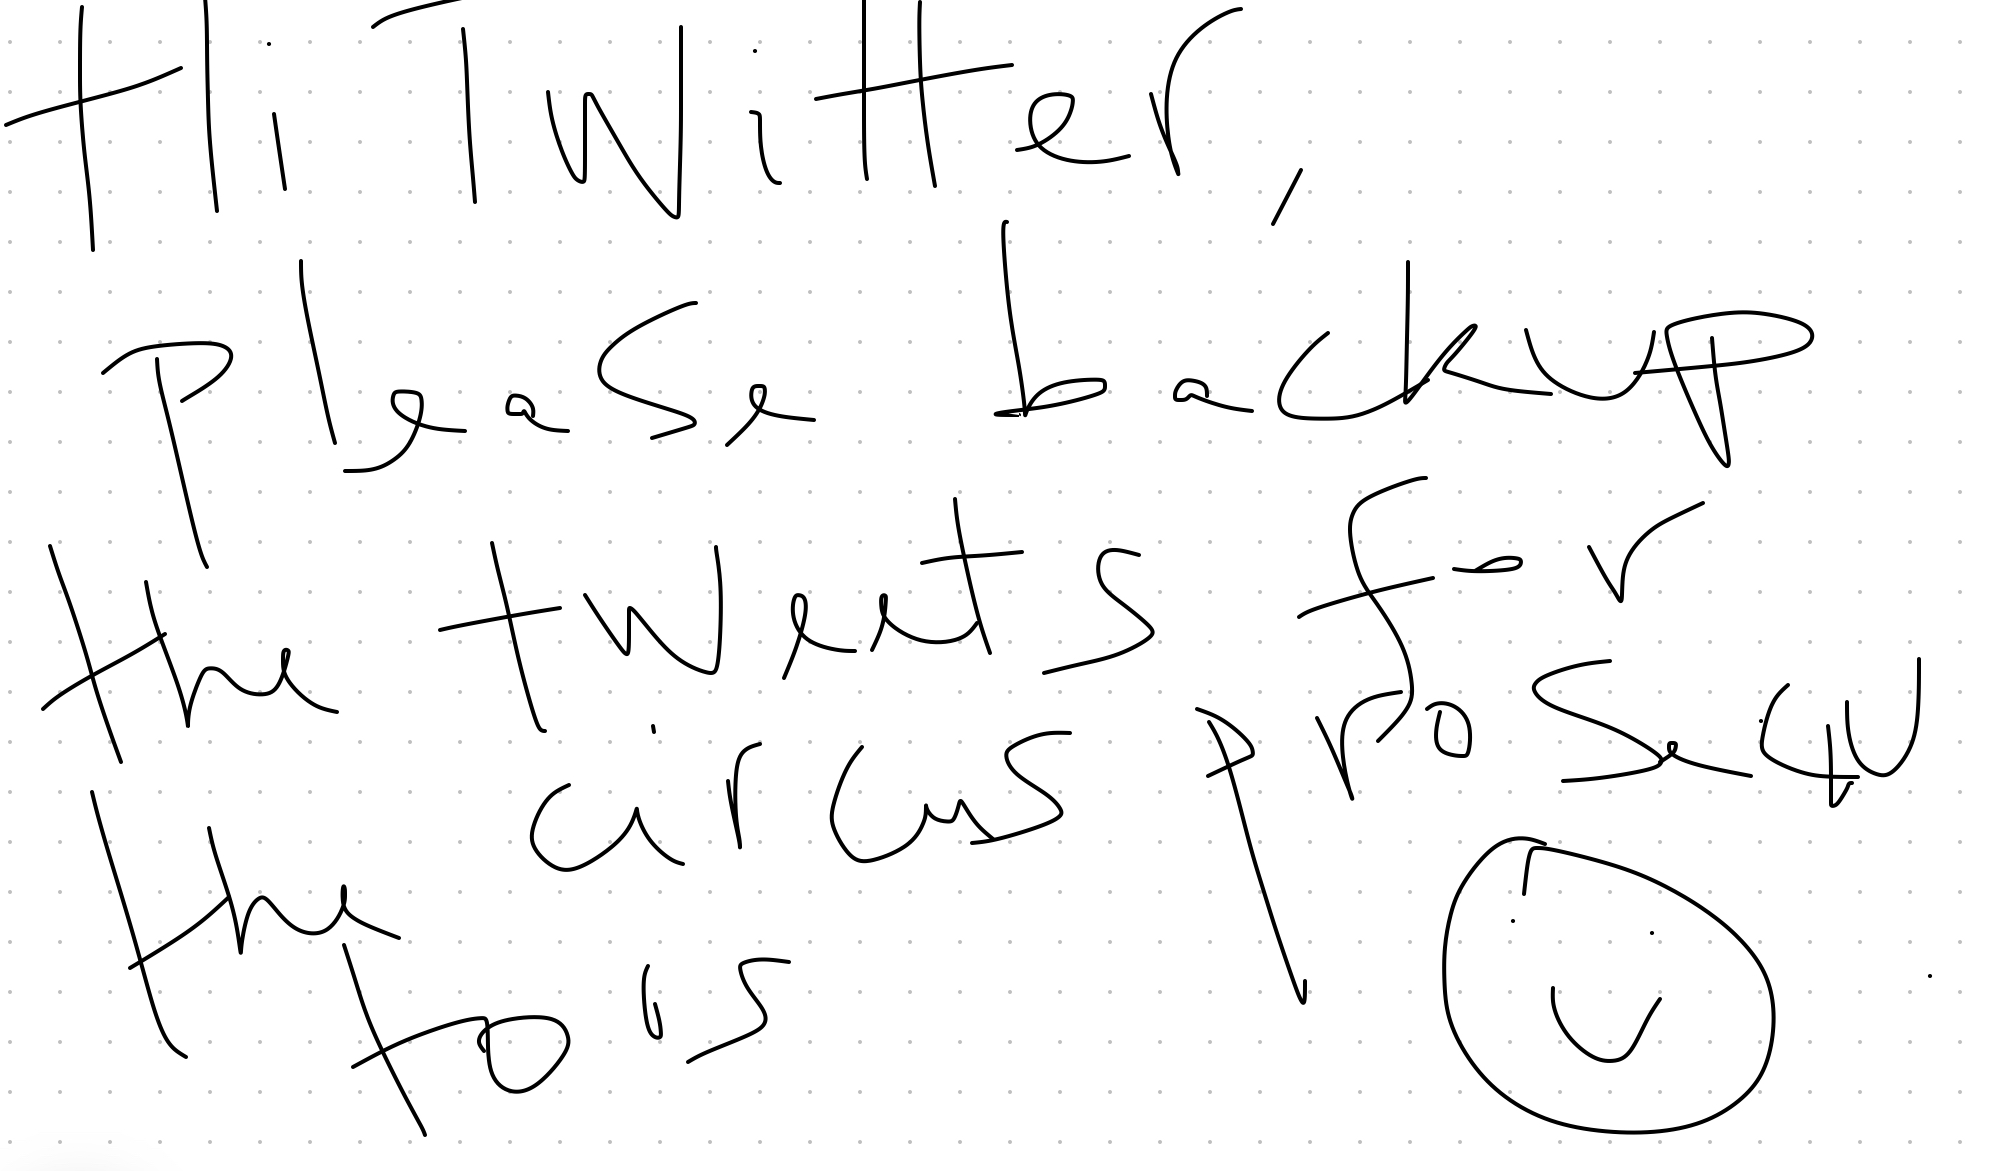 Hi Twitter,
Please backup
the tweets for
the circus prosecu
tors